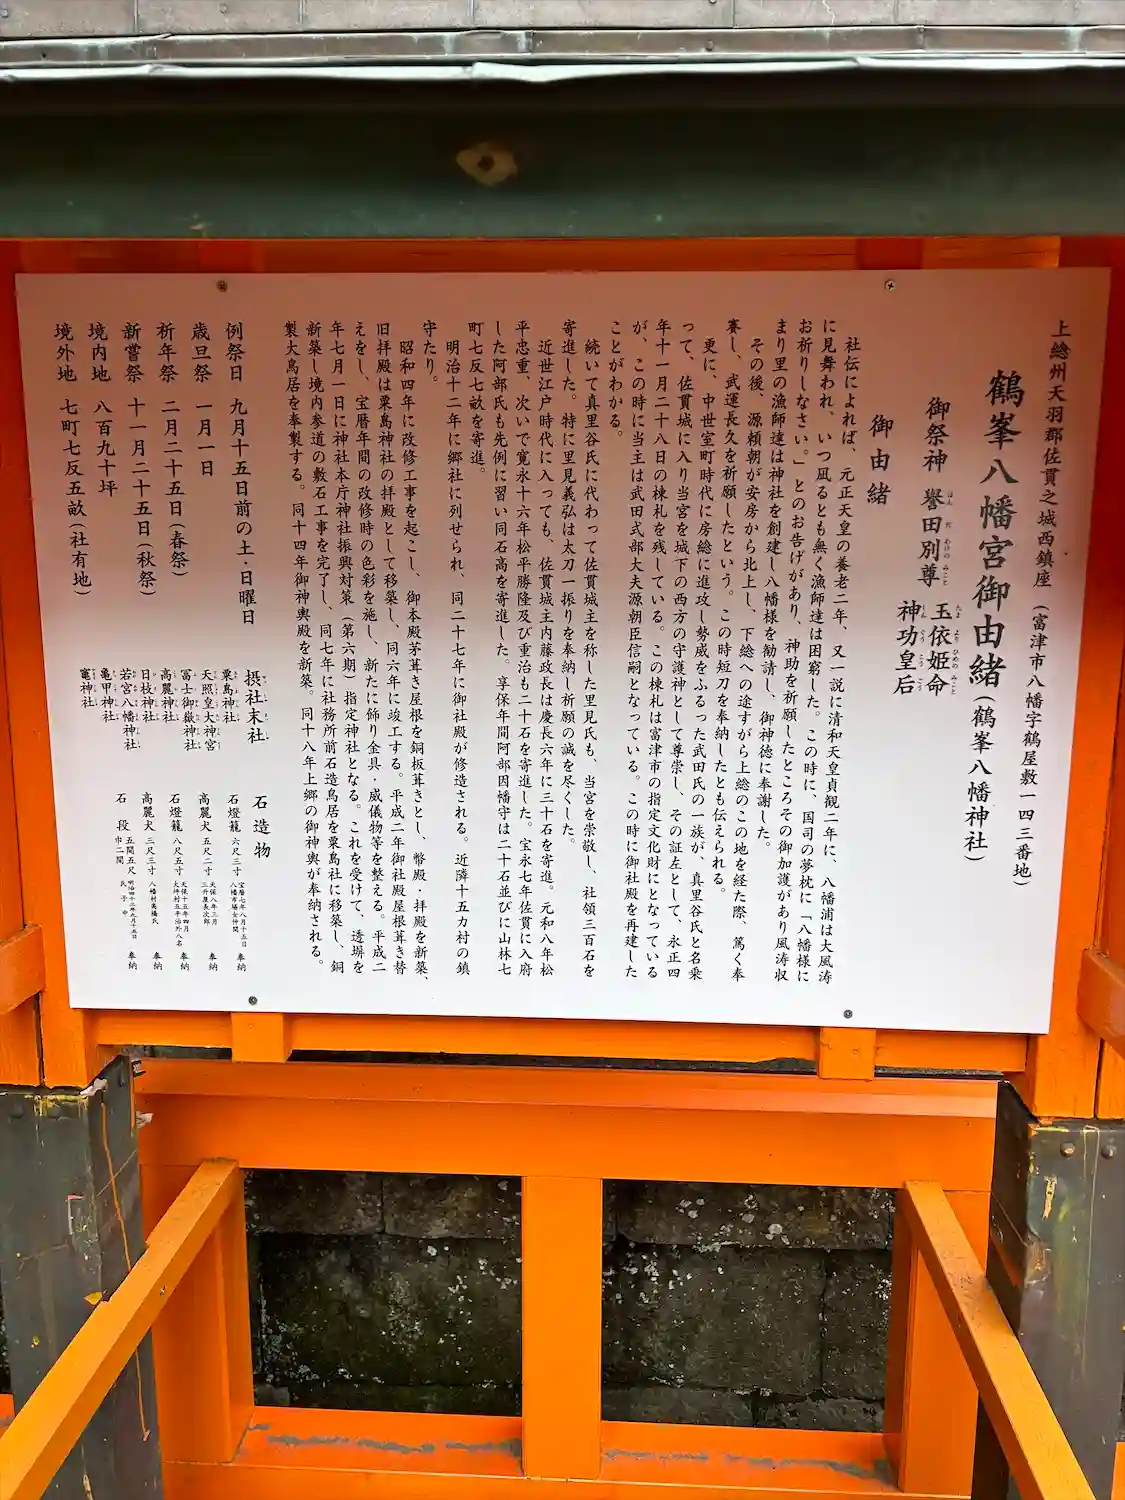 上総州天羽郡佐貫之城西鎮座 (富津市八幡字鶴屋敷一四三番地)
鶴峯八幡宮御由緒(鶴峯八幡神社)
御祭神 誉田別尊 玉依姫命
神功皇后
御由緒
社伝によれば、元正天皇の養老二年、又一説に清和天皇貞観二年に、八幡浦は大風涛
に見舞われ、いつ凪るとも無く漁師達は困窮した。この時に、国司の夢枕に「八幡様に
お祈りしなさい。」とのお告げがあり、神助を祈願したところその御加護があり風涛収
まり里の漁師達は神社を創建し八幡様を勧請し、御神徳に奉謝した。
その後、源頼朝が安房から北上し、下総への途すがら上総のこの地を経た際、篤く奉
賽し、武運長久を祈願したという。この時短刀を奉納したとも伝えられる。
更に、中世室町時代に房総に進攻し勢威をふるった武田氏の一族が、真里谷氏と名乗
って、佐貫城に入り当宮を城下の西方の守護神として尊崇し、その証左として、永正四
年十一月二十八日の棟札を残している。この棟札は富津市の指定文化財にとなっている
が、この時に当主は武田式部大夫源朝臣信嗣となっている。この時に御社殿を再建した
ことがわかる。
続いて真里谷氏に代わって佐貫城主を称した里見氏も、当宮を崇敬し、社領三百石を
寄進した。特に里見義弘は太刀一振りを奉納し祈願の誠を尽くした。
近世江戸時代に入っても、佐貫城主内藤政長は慶長六年に三十石を寄進。元和八年松
平忠重、次いで寛永十六年松平勝隆及び重治も二十石を寄進した。宝永七年佐貫に入府
した阿部氏も先例に習い同石高を寄進した。享保年間阿部因幡守は二十石並びに山林七
町七反七畝を寄進。
明治十二年に郷社に列せられ、同二十七年に御社殿が修造される。近隣十五カ村の鎮
守たり。
昭和四年に改修工事を起こし、御本殿茅葺き屋根を銅板葺きとし、幣殿・拝殿を新築、
旧拝殿は粟島神社の拝殿として移築し、同六年に竣工する。平成二年御社殿屋根葺き替
えをし、宝暦年間の改修時の色彩を施し、新たに飾り金具・威儀物等を整える。平成二
年七月一日に神社本庁神社振興対策(第六期)指定神社となる。これを受けて、透塀を
新築し境内参道の敷石工事を完了し、同七年に社務所前石造鳥居を粟島社に移築し、銅
製大鳥居を奉製する。同十四年御神輿殿を新築。同十八年上郷の御神輿が奉納される。
例祭日 九月十五日前の土・日曜日
歳旦祭 一月一日
祈年祭 二月二十五日(春祭)
新嘗祭 十一月二十五日(秋祭)
境内地 八百九十坪
境外地 七町七反五畝(社有地)
摂社末社
粟島神社
天照皇大神宮
冨士御嶽神社
高麗神社
日枝神社
若宮八幡神社
亀甲神社
竈神社
石造物
石燈籠 六尺三寸 宝暦七年八月十五日 八幡市場女仲間 奉納
高麗犬 五尺二寸 天保八年三月 三升屋長次郎 奉納
石燈籠 八尺五寸 天保十五年四月 大坪村五平治外八名 奉納
高麗犬 三尺三寸 八幡村高橋氏 奉納
石段 五間五尺 市二間 明治四十三年九月十五日 氏子中 奉納